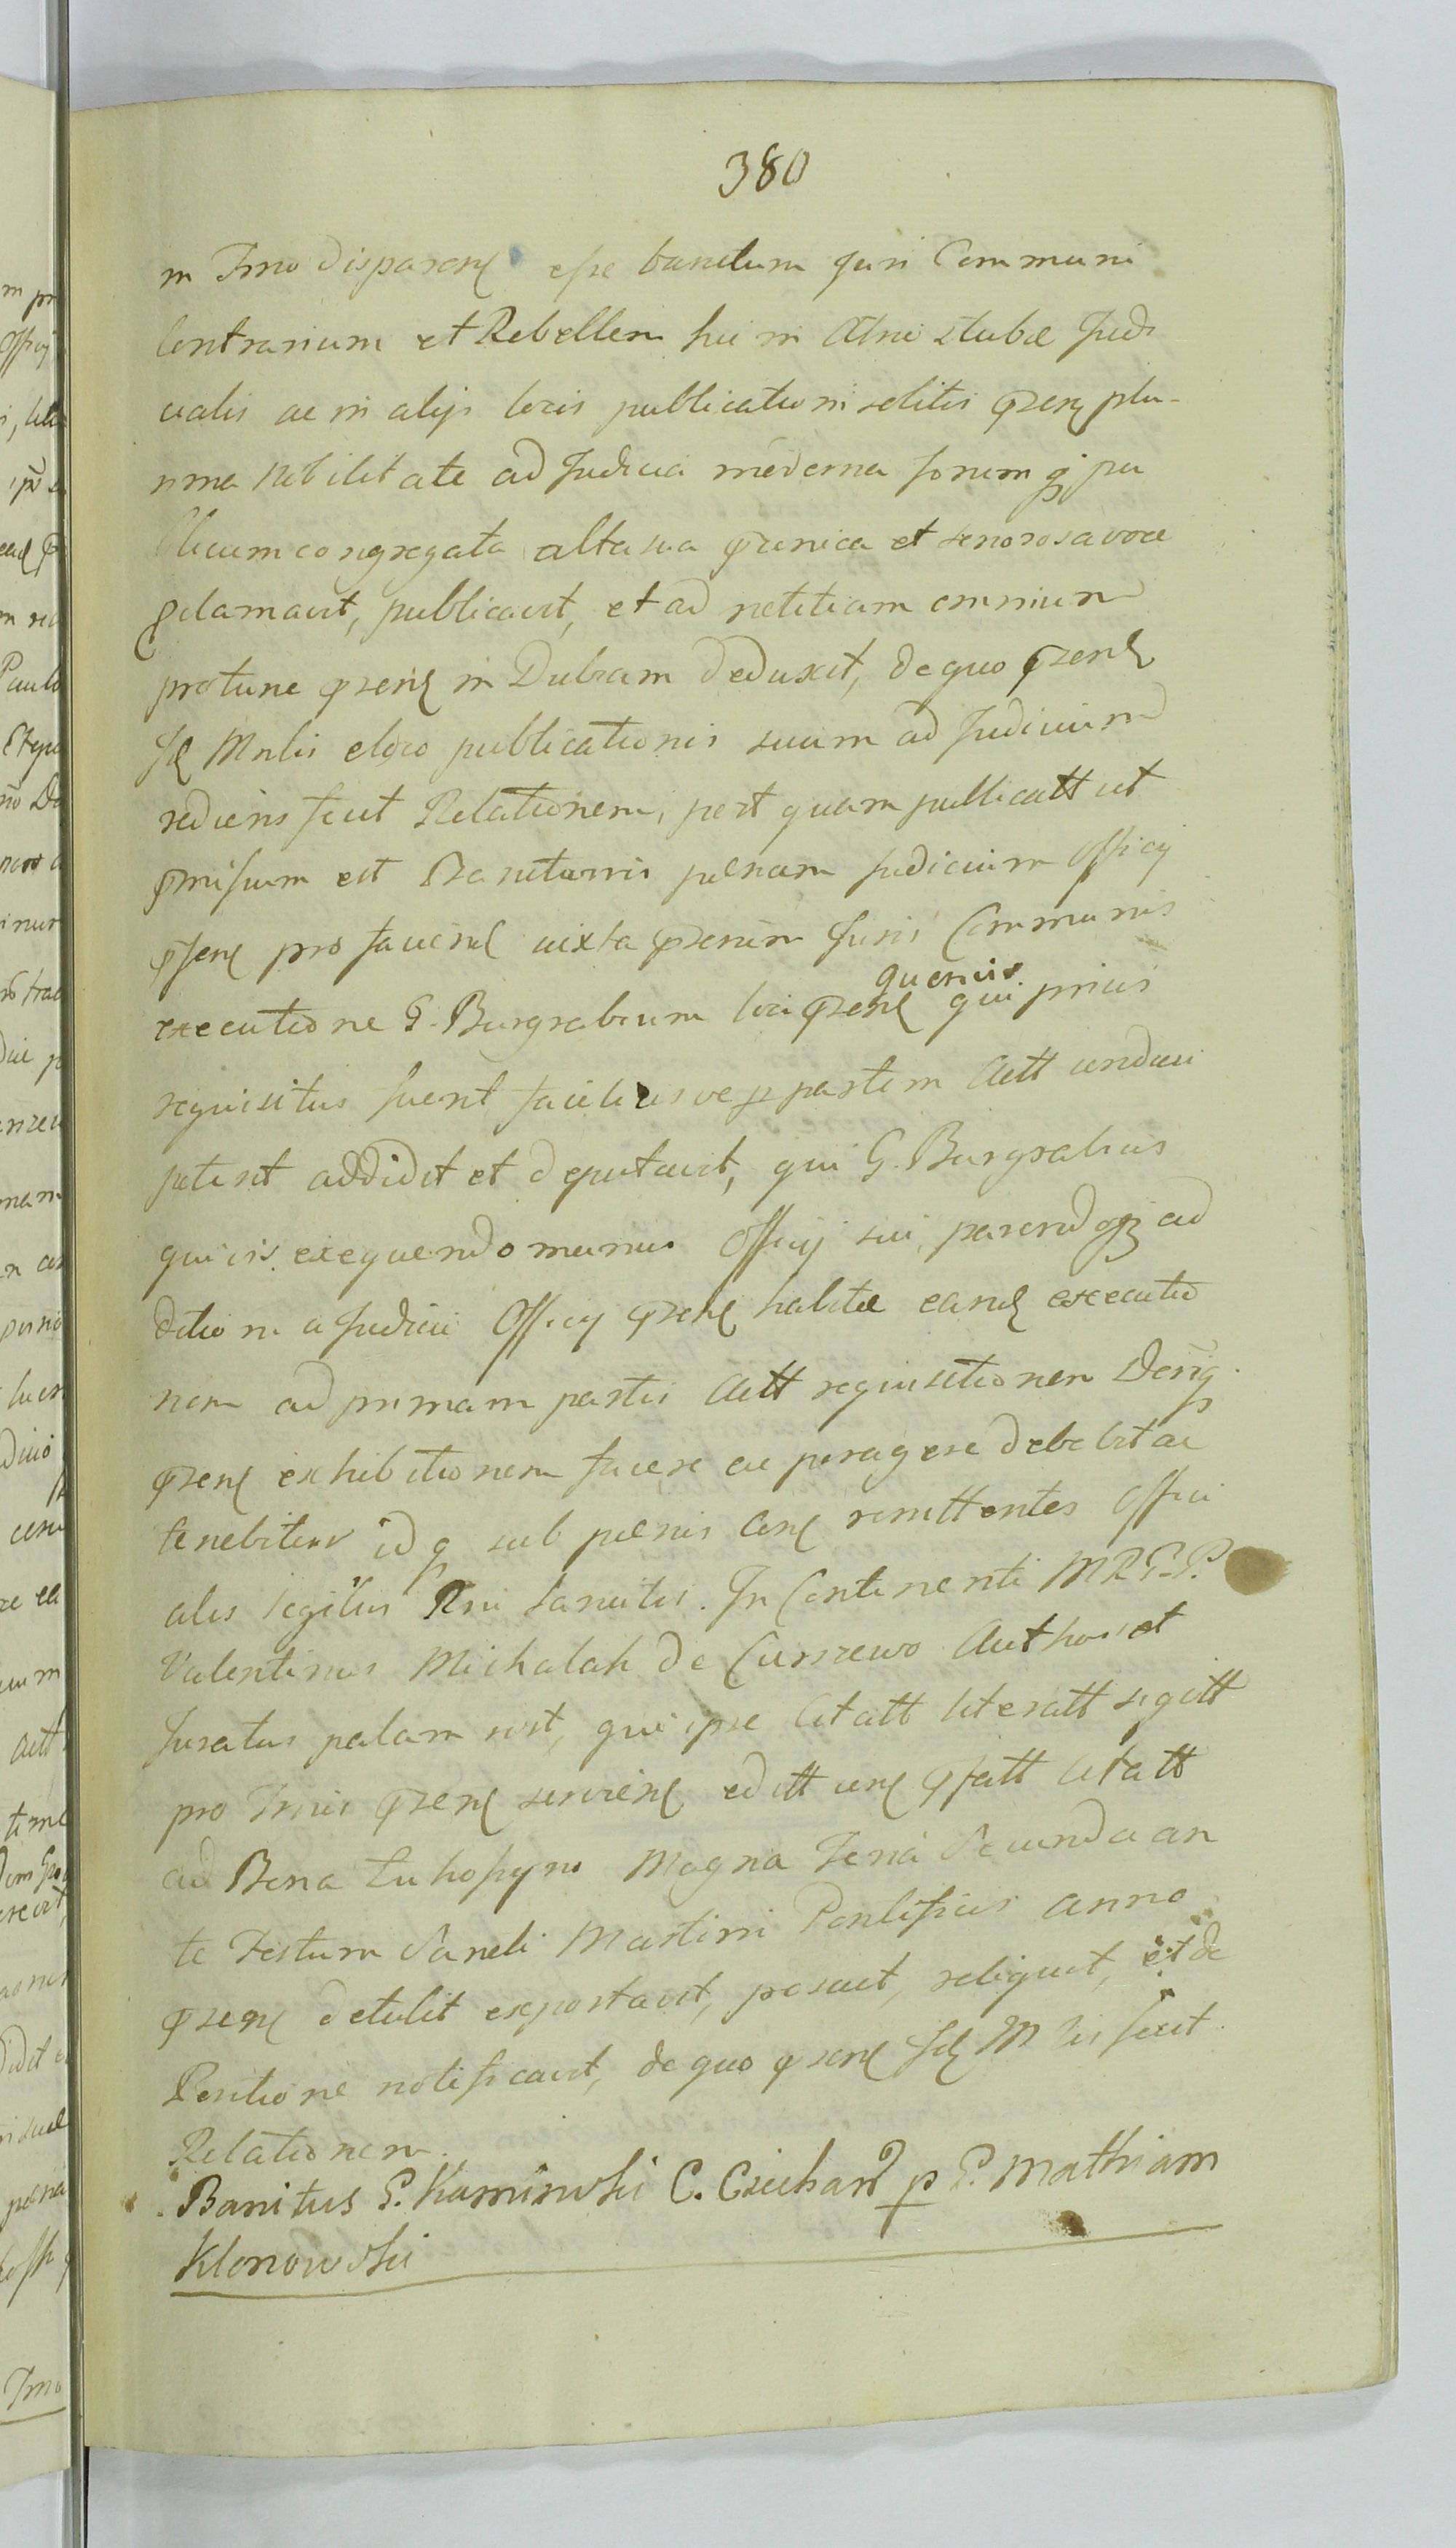 380
in Tmo disparen esse banitum Juri Communi
Contrarium et Rebellem hic in Atrio Stubae Judi
cialis ac in alijs locis publicationi solitis pzen plu-
rima Nobilitate ad Judicia moderna forum q pu
blicum congregata alta sua pzenica et sonorosa voce
pclamavit, publicavit, et ad notitiam omnium
protunc pzen in Dubram deduxit, de quo pzen
fd Mnlis eloco publicationis suum ad Judicium
rediens fecit Relationem, post quam publicatt ut
pmissum est Banitionis poenam Judicium Officij
psen pro faciend iuxta pzenim Juris Communis
quemvis
executione G. Burgrabium loci pzen qui prius
requisitus fuerit faciliusve p partem Actt conduci
poterit addidit et deputavit, qui G. Burgrabius
quivis exequendo munus Officij sui, parendoq ad
ditioni a Judicii Officij pzen habitae eand executio
nem ad primam partis Actt requisitionem Deriq
pzen exhibitionem facere ac peragere debebit ac
tenebitur id q sub poenis Cen remittentes Offici
ales legibus Rni sancitis. In Continenti MRGP.
Valentinus Michalak de Curzewo Author et
Juratus palam rost, quia ipse Citatt literatt sigitt
pro Tmis pzen servien editt cen pfatt Citatt
ad Bona Lukoszyno Magna Feria Secunda an
te Festum Sancti Martini Pontificis anno
pzen detulit exportavit, posuit, reliquit, et de
Positione notificavit, de quo pzen fd Mlis fecit
Relationem.
Banitus G. Kaminski C. Ciechan p G. Mathiam
Klonowski